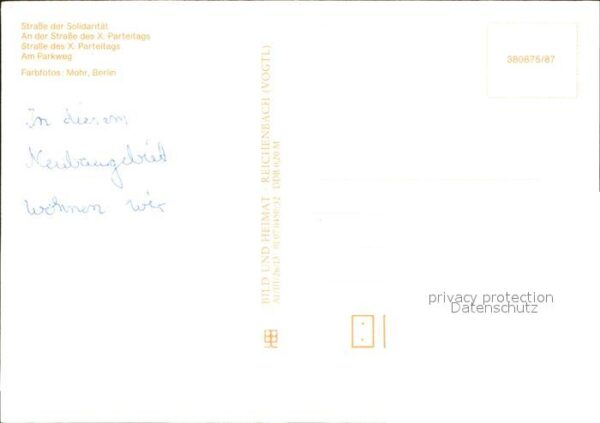 Straße der Solidarität
An der Straße des X. Parteitags
Straße des X. Parteitags
Am Parkweg
Farbfotos: Mohr, Berlin
In diesem
Neubaugebiet
wohnen wir
BILD UND HEIMAT · REICHENBACH (VOGTL)
DDR 0,20 M
380875/87
privacy protection
Datenschutz